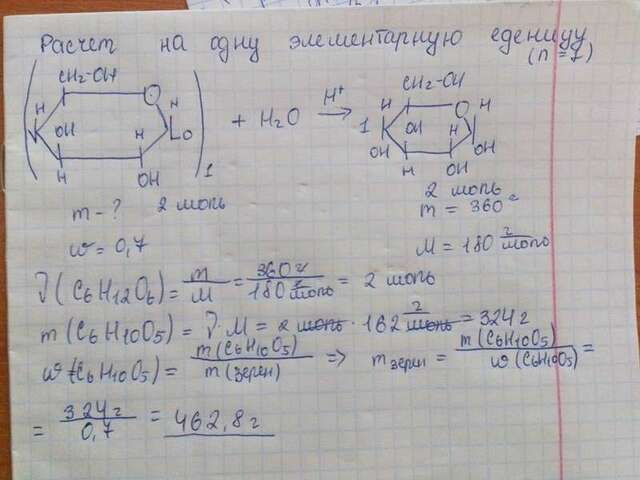 Расчет на одну элементарную еденицу
(n = 1)
CH2-OH
O
H
H
OH
H
O
H
OH
1
+ H2O
H+
→
CH2-OH
H
O
H
1
OH
H
OH
OH
H
OH
m - ?
2 моль
2 моль
m = 360 г
w = 0,7
M = 180 г/моль
ν(C6H12O6) = m/M = 360 г/180 г/моль = 2 моль
m(C6H10O5) = ν·M = 2 моль · 162 г/моль = 324 г
w(C6H10O5) = m(C6H10O5)/m(зерен) => m зерен = m(C6H10O5)/w(C6H10O5) =
= 324 г/0,7 = 462,8 г